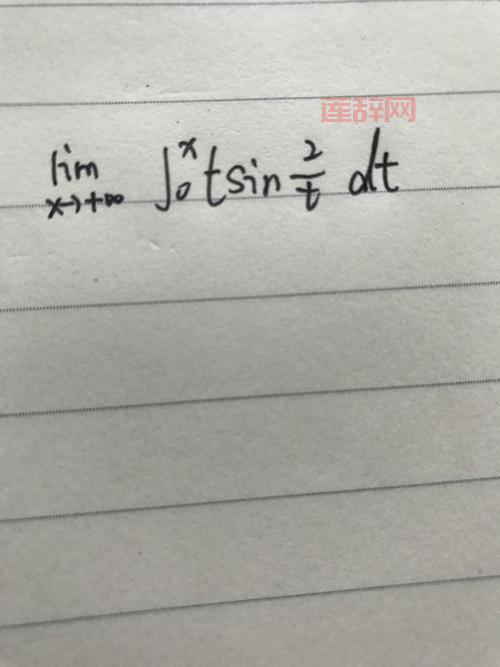 莲辞网
lim x→+∞ ∫₀ˣ t sin 2/t dt